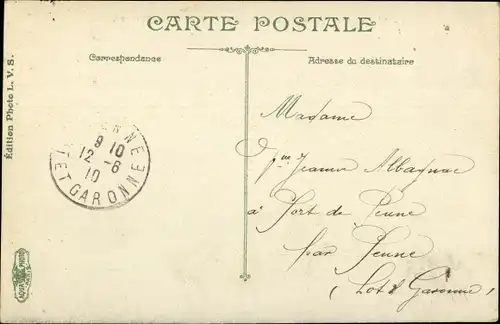 CARTE POSTALE
Correspondance
Adresse du destinataire
Édition Photo L. V. S.
9 10
12 - 6
10
ET GARONNE
Madame
Jeanne Albagnac
à Port de Penne
par Penne
(Lot & Garonne)